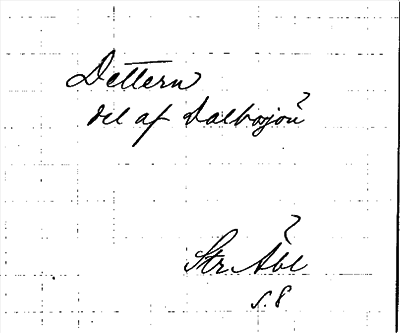 Dettern
del af Dalbosjön?
?
Str Åbl
s. 8